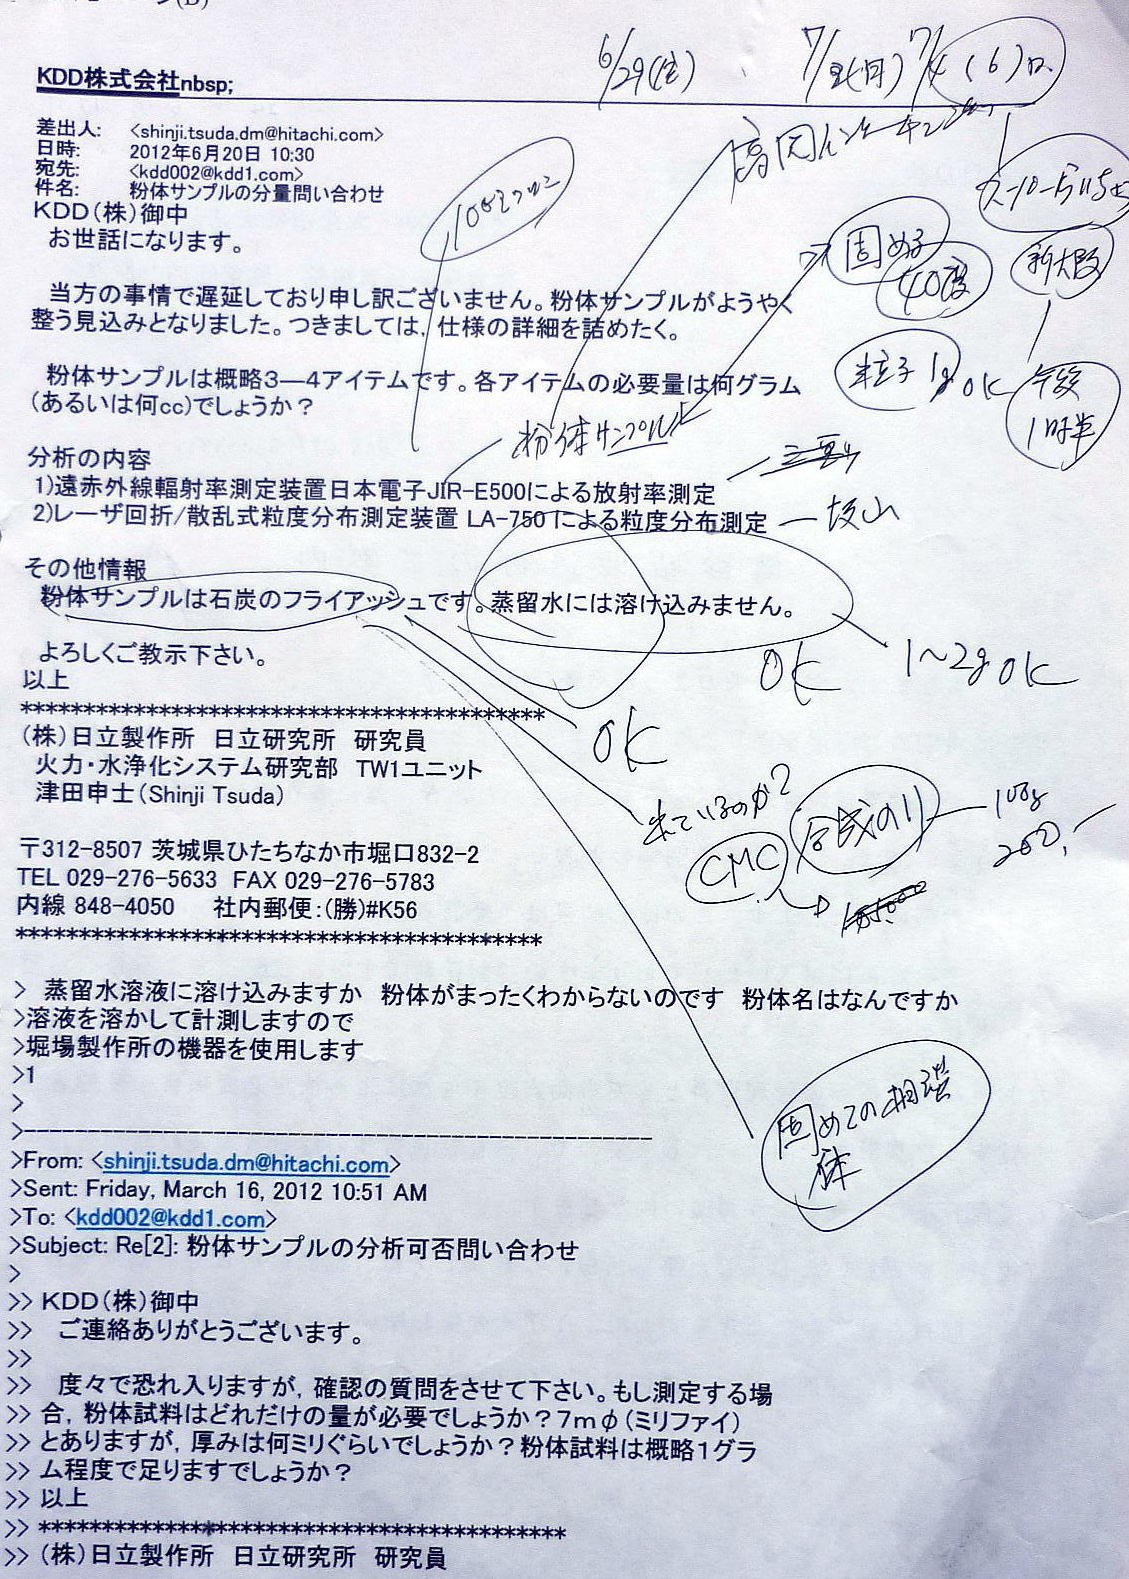 6/29(金) 7/2(月) 7/4 (6)
KDD株式会社nbsp;
差出人: <shinji.tsuda.dm@hitachi.com>
日時: 2012年6月20日 10:30
宛先: <kdd002@kdd1.com>
件名: 粉体サンプルの分量問い合わせ
KDD(株)御中
お世話になります。
固める
40度
新大阪
当方の事情で遅延しており申し訳ございません。粉体サンプルがようやく
整う見込みとなりました。つきましては, 仕様の詳細を詰めたく。
粉体サンプルは概略3―4アイテムです。各アイテムの必要量は何グラム
(あるいは何cc)でしょうか?
粒子 1g OK
午後
1時半
粉体サンプル
分析の内容
1)遠赤外線輻射率測定装置日本電子JIR-E500による放射率測定
2)レーザ回折/散乱式粒度分布測定装置 LA-750 による粒度分布測定
その他情報
粉体サンプルは石炭のフライアッシュです。蒸留水には溶け込みません。
よろしくご教示下さい。
以上
OK
1~2g OK
OK
*****************************************
(株)日立製作所 日立研究所 研究員
火力・水浄化システム研究部 TW1ユニット
津田申士(Shinji Tsuda)
来ているのか?
合成のり
CMC
100g
〒312-8507 茨城県ひたちなか市堀口832-2
TEL 029-276-5633 FAX 029-276-5783
内線 848-4050 社内郵便:(勝)#K56
*****************************************
> 蒸留水溶液に溶け込みますか 粉体がまったくわからないのです 粉体名はなんですか
>溶液を溶かして計測しますので
>堀場製作所の機器を使用します
>1
>
>--------------------------------------------------
固めての相談
体
>From: <shinji.tsuda.dm@hitachi.com>
>Sent: Friday, March 16, 2012 10:51 AM
>To: <kdd002@kdd1.com>
>Subject: Re[2]: 粉体サンプルの分析可否問い合わせ
>
>> KDD(株)御中
>> ご連絡ありがとうございます。
>>
>> 度々で恐れ入りますが, 確認の質問をさせて下さい。もし測定する場
>> 合, 粉体試料はどれだけの量が必要でしょうか?7mφ(ミリファイ)
>> とありますが, 厚みは何ミリぐらいでしょうか?粉体試料は概略1グラ
>> ム程度で足りますでしょうか?
>> 以上
>> *****************************************
>> (株)日立製作所 日立研究所 研究員